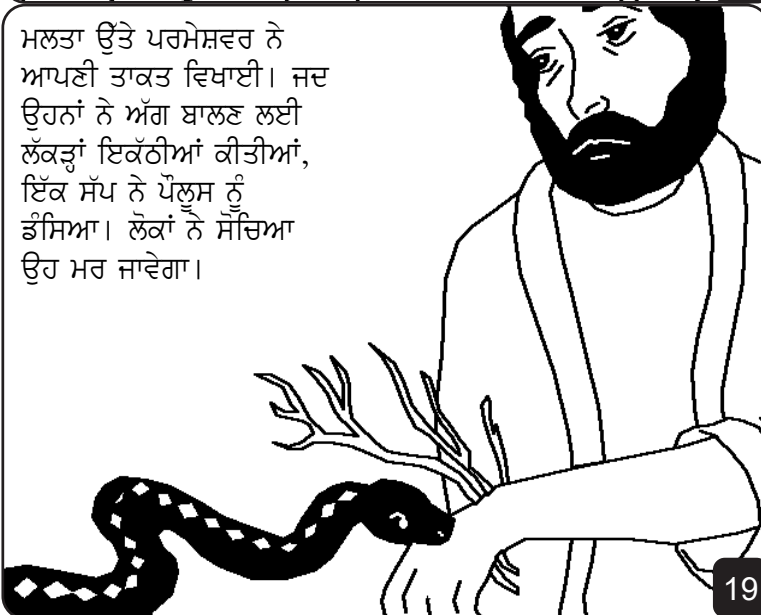 ਮਲਤਾ ਉੱਤੇ ਪਰਮੇਸ਼ਵਰ ਨੇ
ਆਪਣੀ ਤਾਕਤ ਵਿਖਾਈ। ਜਦ
ਉਹਨਾਂ ਨੇ ਅੱਗ ਬਾਲਣ ਲਈ
ਲੱਕੜ੍ਹਾਂ ਇਕੱਠੀਆਂ ਕੀਤੀਆਂ,
ਇੱਕ ਸੱਪ ਨੇ ਪੌਲੂਸ ਨੂੰ
ਡੰਸਿਆ। ਲੋਕਾਂ ਨੇ ਸੋਚਿਆ
ਉਹ ਮਰ ਜਾਵੇਗਾ।
19